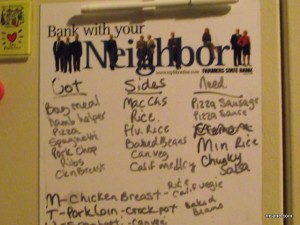 Bank with your
Neighbor
FARMERS STATE BANK
Got Sides Need
Bag meal Mac Chs Pizza Sausage
Hamb helper Rice Pizza Sauce
Pizza Flv. Rice
Spaghetti Baked Beans Min Rice
Pork Chop Can veg Chunky
Ribs Calif medley Salsa
Ckn Breast
M-Chicken Breast - Rice Calif Vegie
T-Porkloin - crockpot Baked Beans